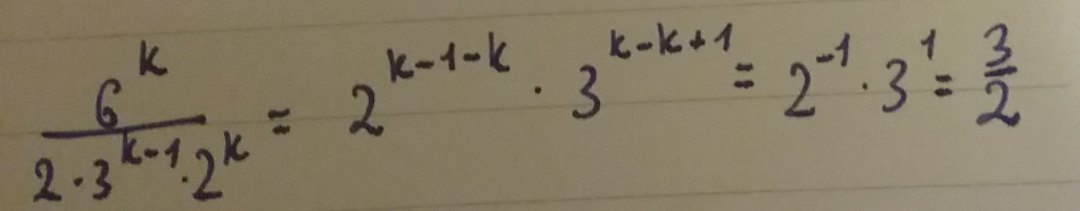 \frac{6^k}{2 \cdot 3^{k-1} \cdot 2^k} = 2^{k-1-k} \cdot 3^{k-k+1} = 2^{-1} \cdot 3^1 = \frac{3}{2}